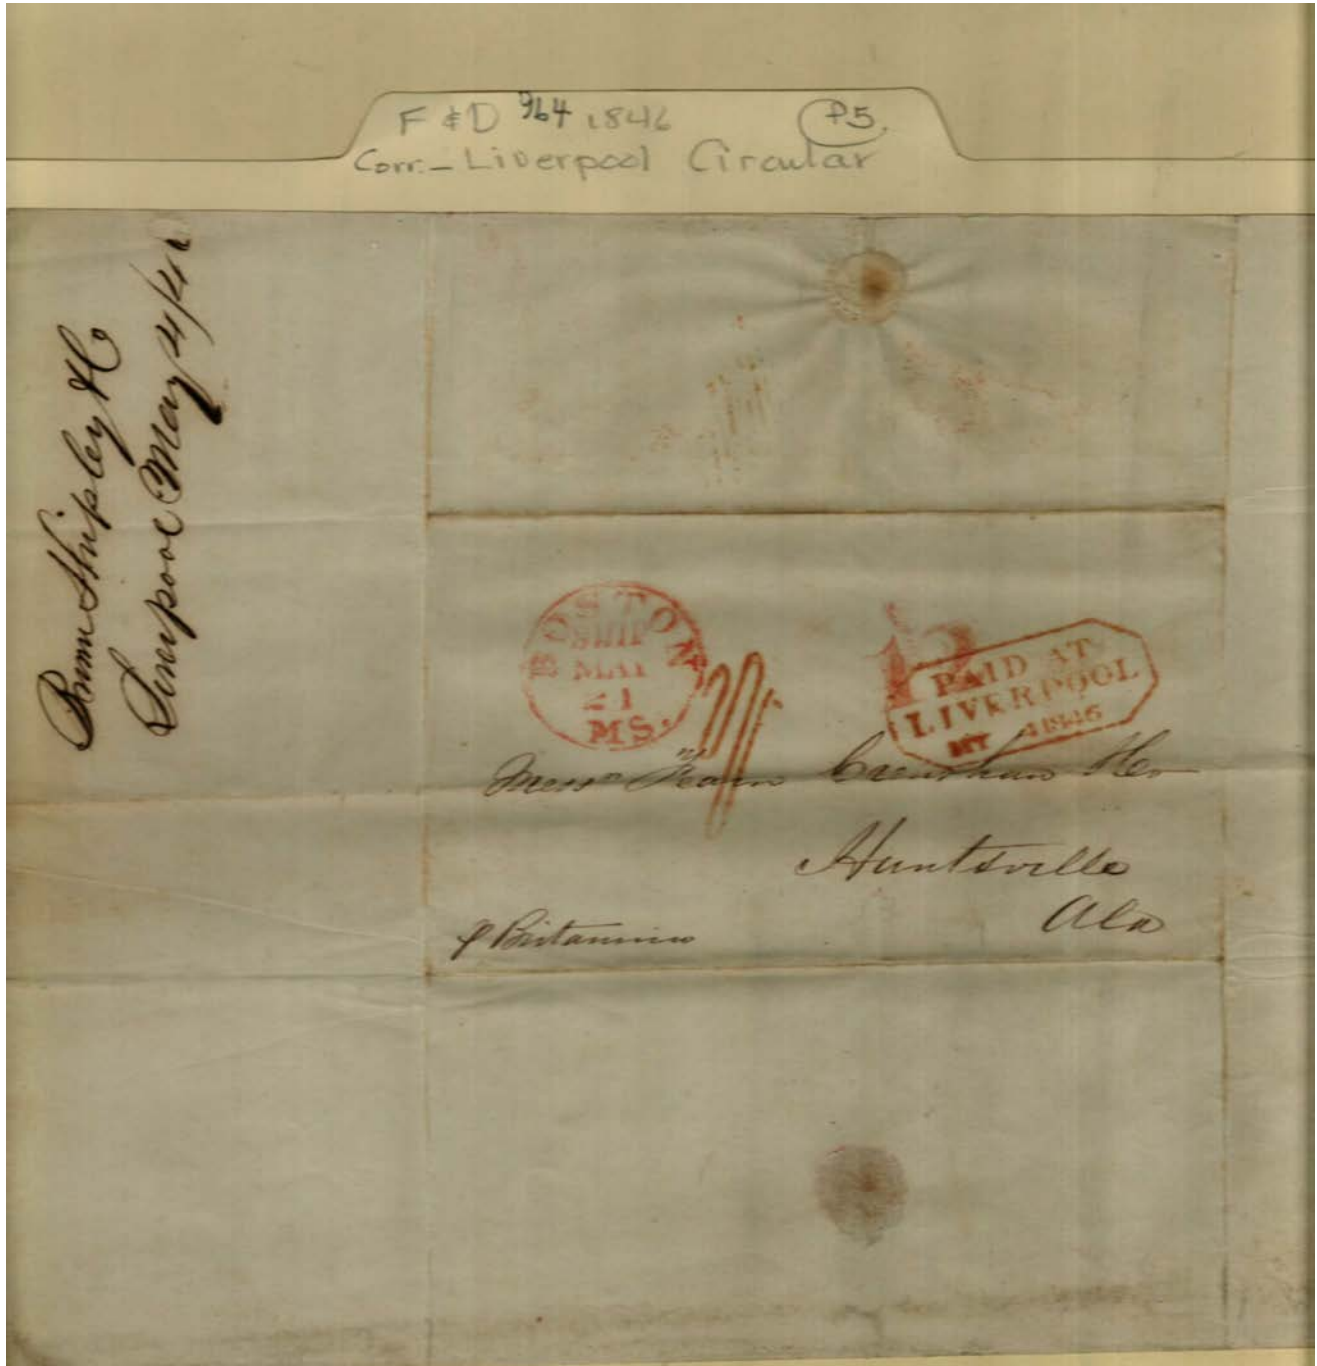 F & D 964 1846 P5
Corr. - Liverpool Circular
Brown Shipley & Co
Liverpool May 4/46
BOSTON
SHIP
MAY
21
MS.
12
PAID AT
LIVERPOOL
MY 4 1846
Messrs Fearn Crenshaw & Co
Huntsville
Ala
p Britannia